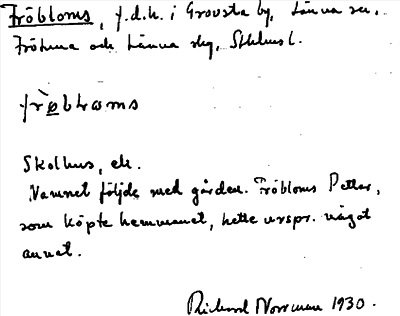 Fröbloms, f.d.h. i Grovsta by, Länna sn.
Fröhuna och Länna skg, Sthlms l.
frø̀blωms
Skolhus, etc.
Namnet följde med gården. Fröbloms Petter,
som köpte hemmanet, hette urspr. något
annat.
Richard Norrman 1930.